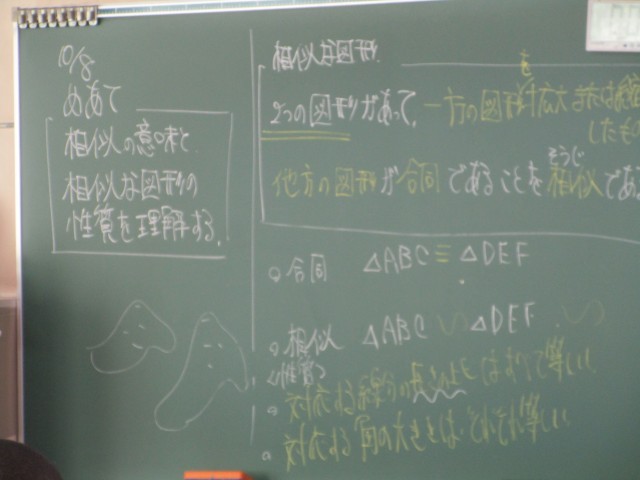 10/8
めあて
相似の意味と
相似な図形の
性質を理解する。
相似な図形
を
2つの図形があって、一方の図形を拡大または縮
したもの
他方の図形が合同であることを相似である
そうじ
○合同 △ABC≡△DEF
○相似 △ABC ∽ △DEF ∽
<性質>
○対応する線分の長さの比はすべて等しい
○対応する角の大きさはそれぞれ等しい